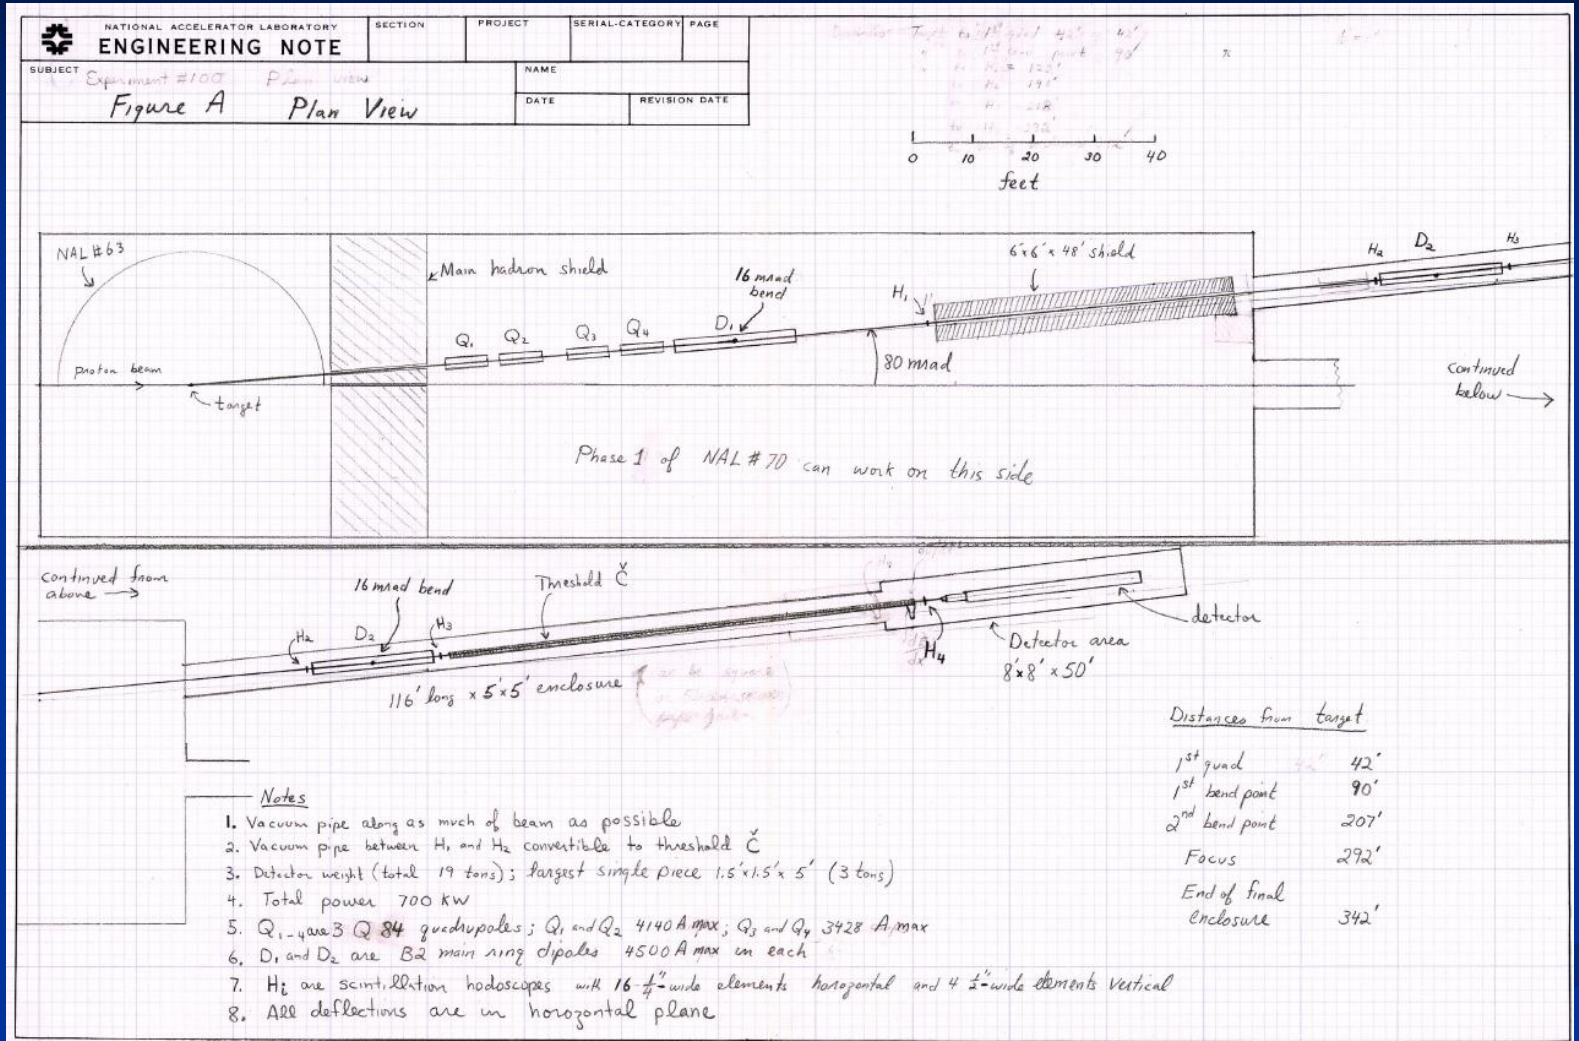 NATIONAL ACCELERATOR LABORATORY
ENGINEERING NOTE
SECTION
PROJECT
SERIAL-CATEGORY
PAGE
SUBJECT
Experiment #100 Plan view
Figure A Plan View
NAME
DATE
REVISION DATE
42'
90'
0 10 20 30 40
feet
NAL #63
Main hadron shield
16 mrad
bend
6'x6' x 48' shield
H2
D2
H3
Q1
Q2
Q3
Q4
D1
H1
proton beam
80 mrad
target
continued
below
Phase 1 of NAL #70 can work on this side
continued from
above
16 mrad bend
Threshold Č
H2
D2
H3
H4
detector
Detector area
8'x8' x 50'
116' long x 5'x5' enclosure
Distances from target
1st quad 42'
1st bend point 90'
2nd bend point 207'
Focus 292'
End of final
enclosure 342'
Notes
1. Vacuum pipe along as much of beam as possible
2. Vacuum pipe between H1 and H2 convertible to threshold Č
3. Detector weight (total 19 tons); largest single piece 1.5'x1.5'x 5' (3 tons)
4. Total power 700 KW
5. Q1-4 are 3 Q 84 quadrupoles; Q1 and Q2 4140 A max; Q3 and Q4 3428 A max
6. D1 and D2 are B2 main ring dipoles 4500 A max in each
7. Hi are scintillation hodoscopes with 16-1/4"-wide elements horozontal and 4 1/2"-wide elements vertical
8. All deflections are in horozontal plane